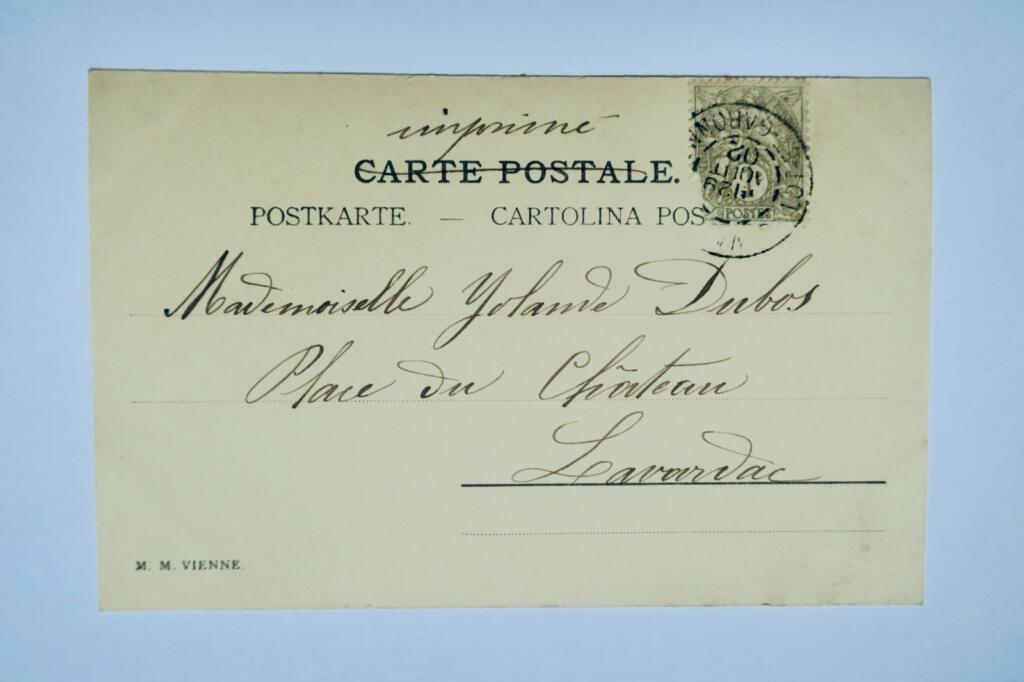 imprimé
CARTE POSTALE.
POSTKARTE. — CARTOLINA POS
LOT-ET-GARONNE
29
AOUT
02
POSTES
Mademoiselle Yolande Dubos
Place du Château
Lavardac
M. M. VIENNE.